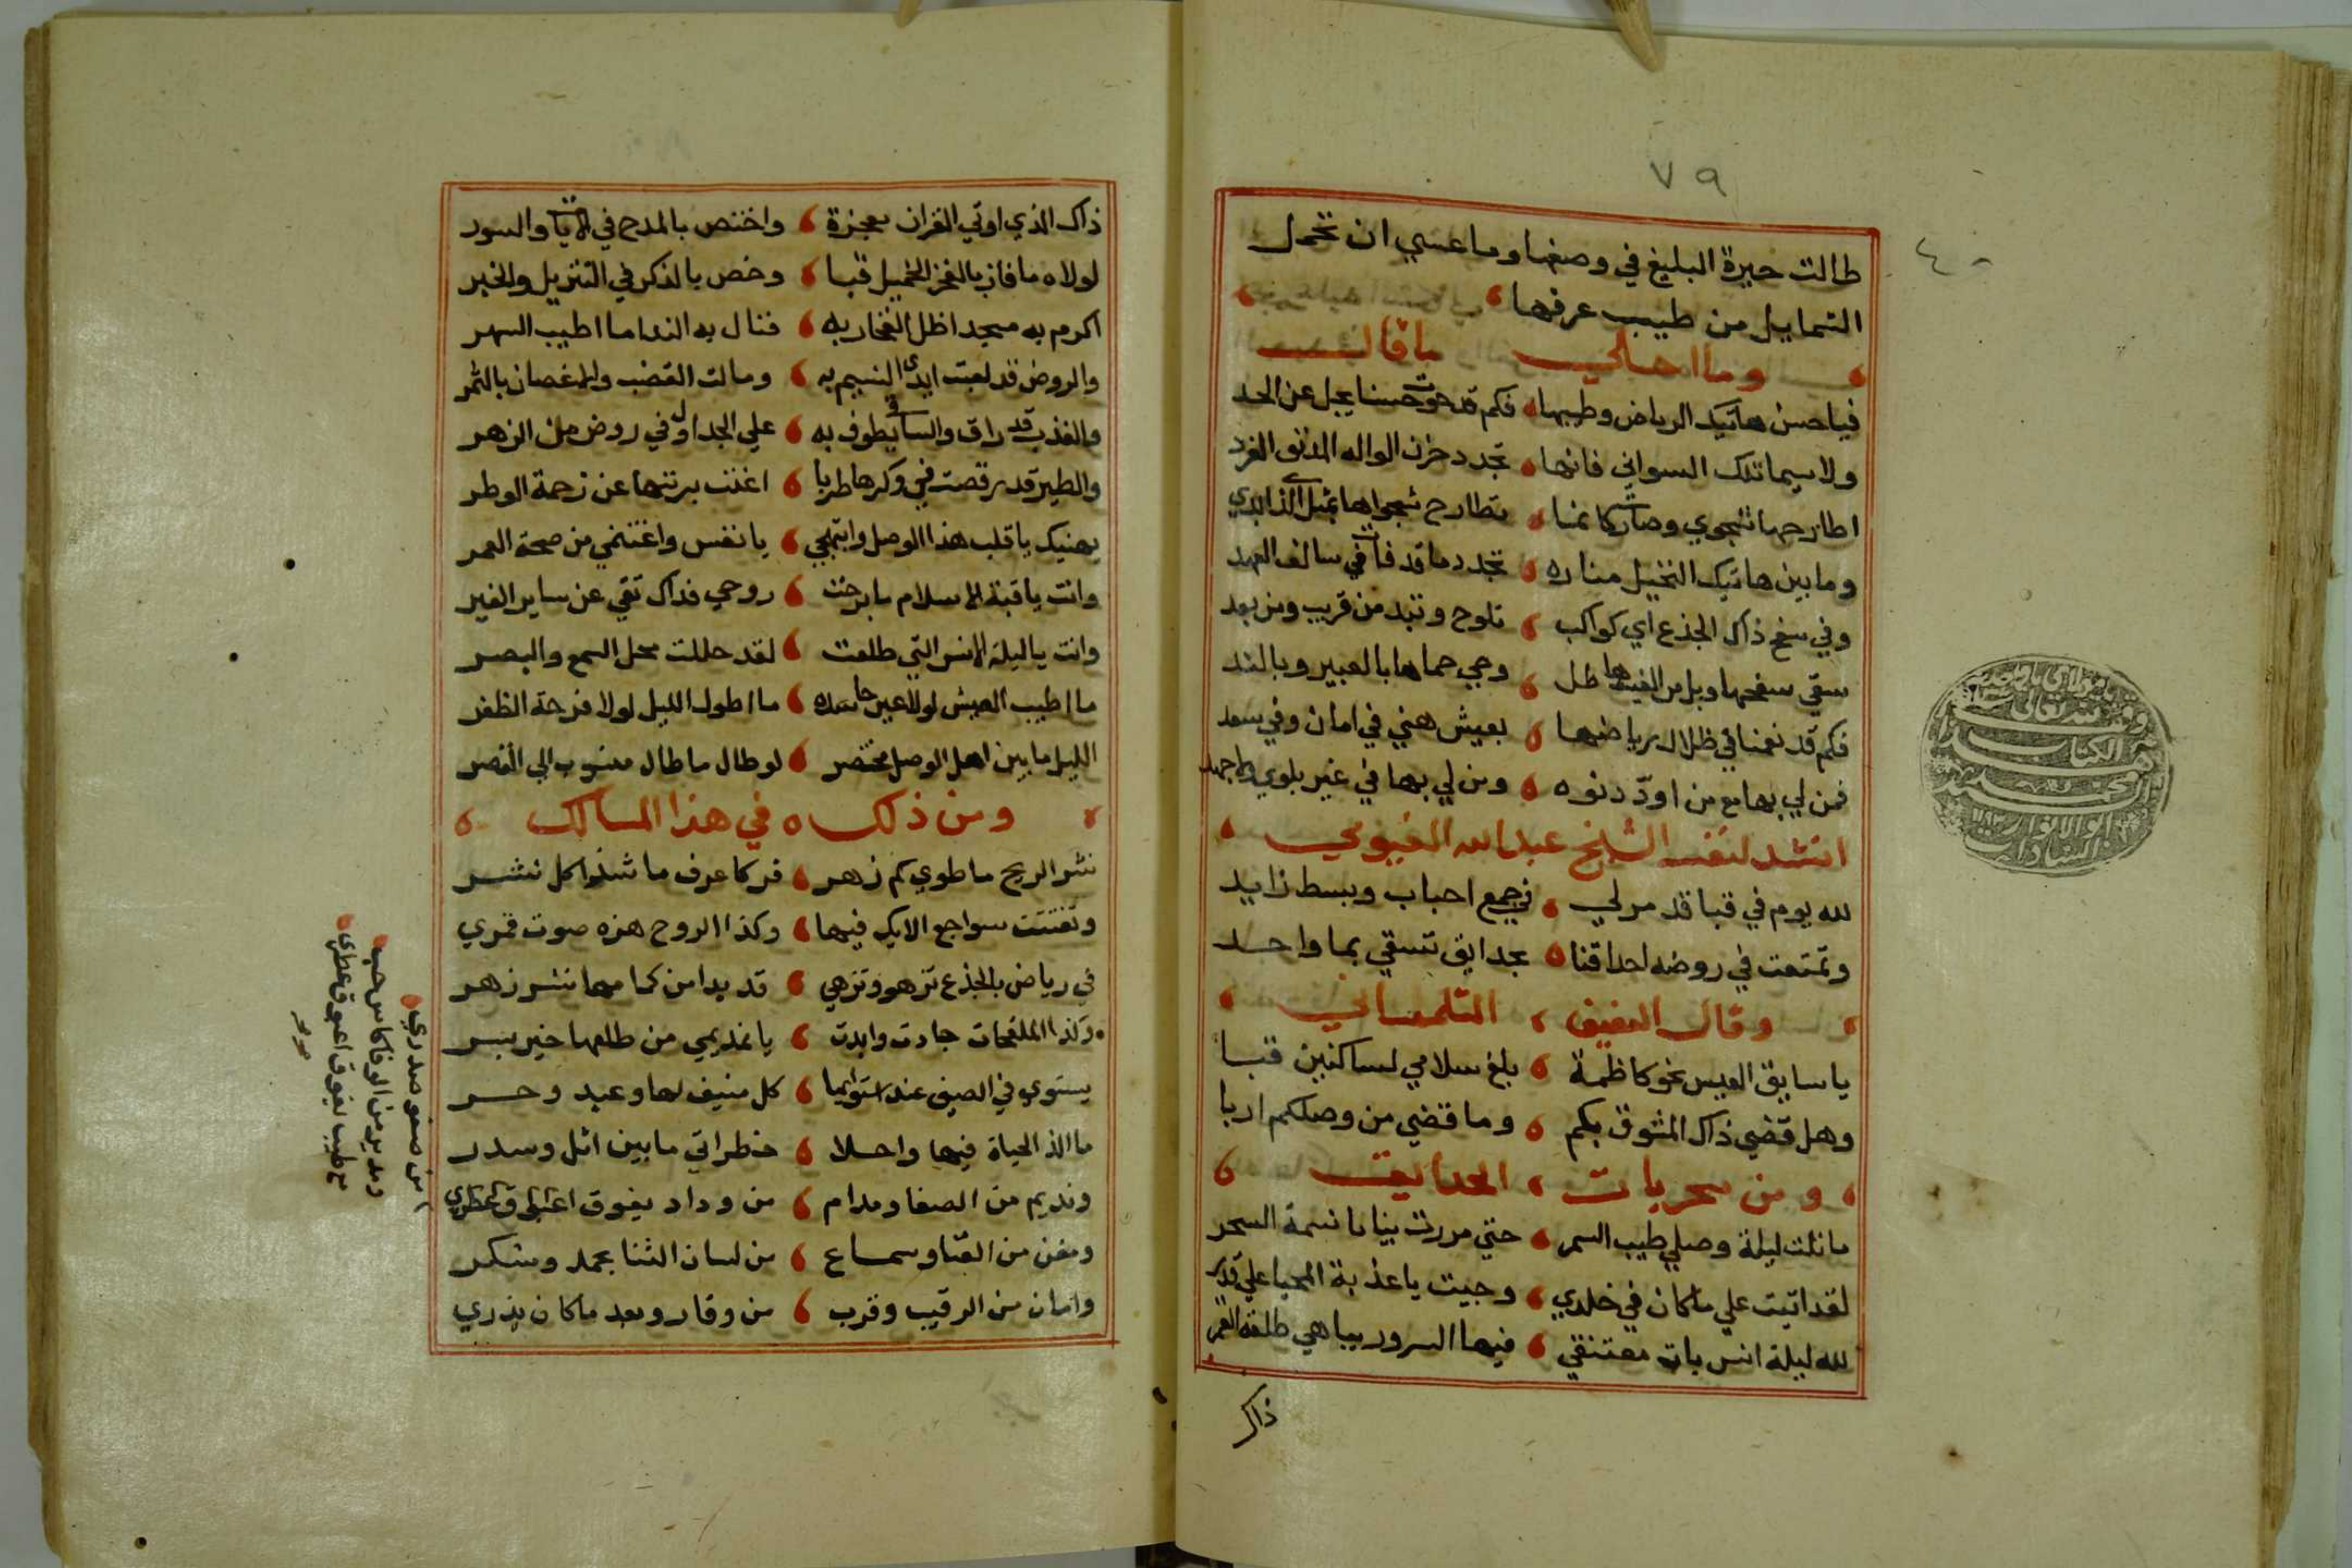 ٧٩
٤٠
طالت حيرة البليغ في وصفها وما عسي ان تحمل
الشمايل من طيب عرفها
وما احلي ما قال
فيا حسن هاتيك الرياض وطيبها فكم قد حوت حسنا يجل عن الحد
ولا سيما تلك السواني فانها تجدد حزن الواله المدنف الفرد
اطارحها شجوي وصارت كانما تطارح شجواها بمثل الذي ابدي
وما بين هاتيك النخيل مناره تجدد ما قد فات في سالف العهد
وفي سفح ذاك الجذع اي كواكب تلوح وتبد من قريب ومن بعد
سقي سفحها وبل من الغيث هاطل وحي حماها بالعبير وبالند
فكم قد نعمنا في ظلال رياضها بعيش هني في امان وفي سعد
فمن لي بها مع من اود دنوه ومن لي بها في غير بلوي ولا جهد
انشد لنفسه الشيخ عبد الله الفيومي
لله يوم في قبا قد مر لي في جمع احباب وبسط زايد
وتمتعت في روضه احداقنا بحدايق تسقي بما واحد
وقال العفيف التلمساني
يا سايق العيس نحو كاظمة بلغ سلامي لساكنين قبا
وهل قضي ذاك المشوق بكم وما قضي من وصلكم اربا
ومن سحريات الحدايق
ما نلت ليلة وصلي طيب السمر حتي مررت بنا يا نسمة السحر
لقد اتيت علي ما كان في خلدي وجيت يا عذبة المحيا علي قدر
لله ليلة انس بات معتنقي فيها السرور يباهي طلعة القمر
ذاك
ذاك الذي اوتي القران معجزة واختص بالمدح في الايات والسور
لولاه ما فاز بالفخر الجميل قبا وخص بالذكر في التنزيل والخبر
اكرم به مسجد اظل الفخار به فنال به الندا ما اطيب السهر
والروض قد لعبت ايدي النسيم به ومالت القضب والاغصان بالثمر
والعذب قد راق والساقي يطوف به علي الجداول في روض من الزهر
والطير قد رقصت في وكرها طربا اغنت برنتها عن زحمة الوطر
يهنيك يا قلب هذا الوصل وابتهجي يا نفس واغتنمي من صحة العمر
وانت يا قبة الاسلام ما برحت روحي فداك تقي عن ساير الغير
وانت يا ليلة الانس التي طلعت لقد حللت محل السمع والبصر
ما اطيب العيش لولا عين حاسده ما اطول الليل لولا فرحة الظفر
الليل ما بين اهل الوصل مختصر لو طال ما طال منسوب الي القصر
ومن ذلك في هذا المسالك
نشر الريح ما طوي كم زهر فزكا عرف ما شذوا كل نشر
وتفننت سواجع الايك فيها وكذا الروح هزه صوت قمري
في رياض بالجذع تزهو وتزهي قد بدا من كمامها نشر زهر
وكذا الملقحات جادت وابدت يا نديمي من طلعها خير بسر
يستوي في الصيف عند استوايها كل منيف لها وعبد وحر
ما الذ الحياة فيها واحلا خطراتي ما بين اثل وسدر
ونديم من الصفا ومدام من وداد يفوق
ومغن من الهنا وسماع من لسان الثنا بحمد وشكر
وامان من الرقيب وقرب من وقار وبعد ما كان يزري
من صفو صدري
ومدير من الوفا كاس حب
من طيب يفوق